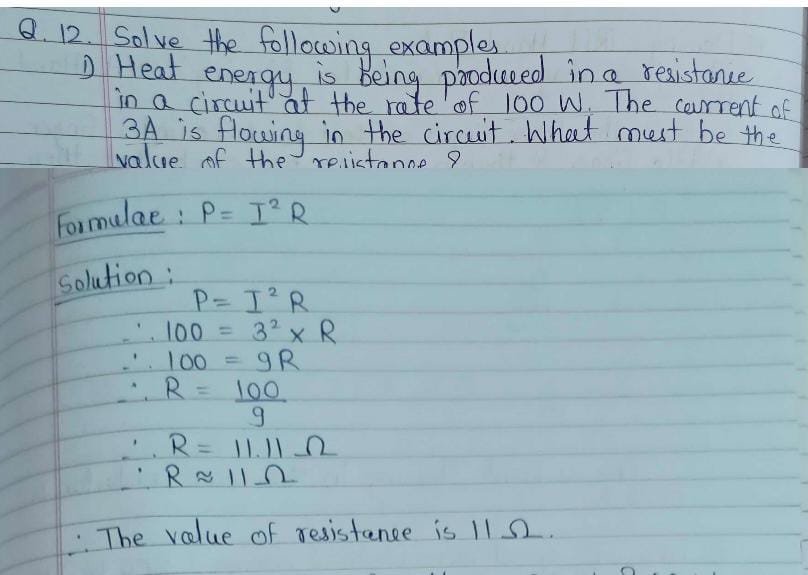 Q. 12. Solve the following examples
1) Heat energy is being produced in a resistance
in a circuit at the rate of 100 W. The current of
3A is flowing in the circuit. What must be the
value of the resistance ?
Formulae : P = I² R
Solution :
P = I² R
∴ 100 = 3² x R
∴ 100 = 9R
∴ R = 100/9
∴ R = 11.11 Ω
∴ R ≈ 11 Ω
∴ The value of resistance is 11 Ω.